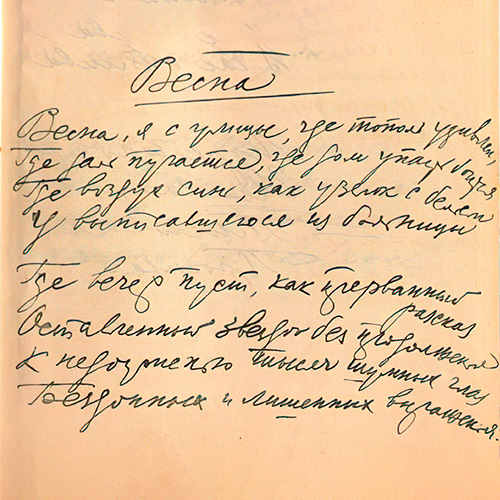 Весна
Весна, я с улицы, где тополь удивлен,
Где даль пугается, где дом упасть боится
Где воздух синь, как узелок с бельем
У выписавшегося из больницы
Где вечер пуст, как прерванный
рассказ
Оставленный звездой без продолженья
К недоуменью тысяч шумных глаз
Бездонных и лишенных выраженья.